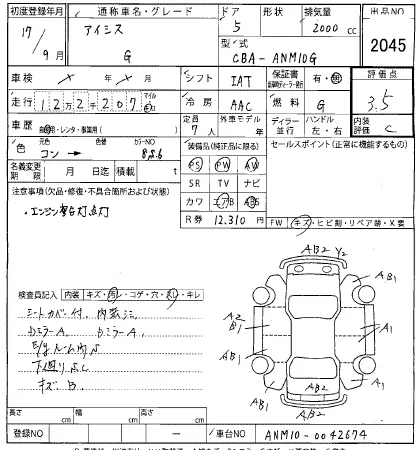 初度登録年月 通称車名・グレード ドア 形状 排気量 出品NO
17/9月 アイシス G 5 2000 cc 2045
型/式 CBA-ANM10G
車検 × 年 × 月 シフト IAT 保証書 有・無 評価点
走行 12万2千207 マイル 冷房 AAC 燃料 G 3.5
車歴 自家用・レンタ・事業用( ) 定員 7人 外車モデル 年 ディーラー 並行 ハンドル 左・右 内装評価 C
色 元色 コン → 色替 カラーNO 8S6
装備品(純正品に限る) セールスポイント(正常に機能するもの)
名義変更期限 月 日 積載量 t
PS PW AW
SR TV ナビ
カワ エアB ABS
R券 12.310円
注意事項(欠品・修復・不具合箇所および状態)
・エンジン警告灯点灯
FW キズ・ヒビ割・リペア跡・X要
検査員記入 内装 キズ・汚レ・コゲ・穴・スレ・キレ
シートカバー付. 内装シミ
下廻りS.C
キズ B.
AB2 Y2
AB1
A2 B1
A1
A1
AB1
AB2
長さ cm 幅 cm 高さ cm
登録NO ー 車台NO ANM10-0042674